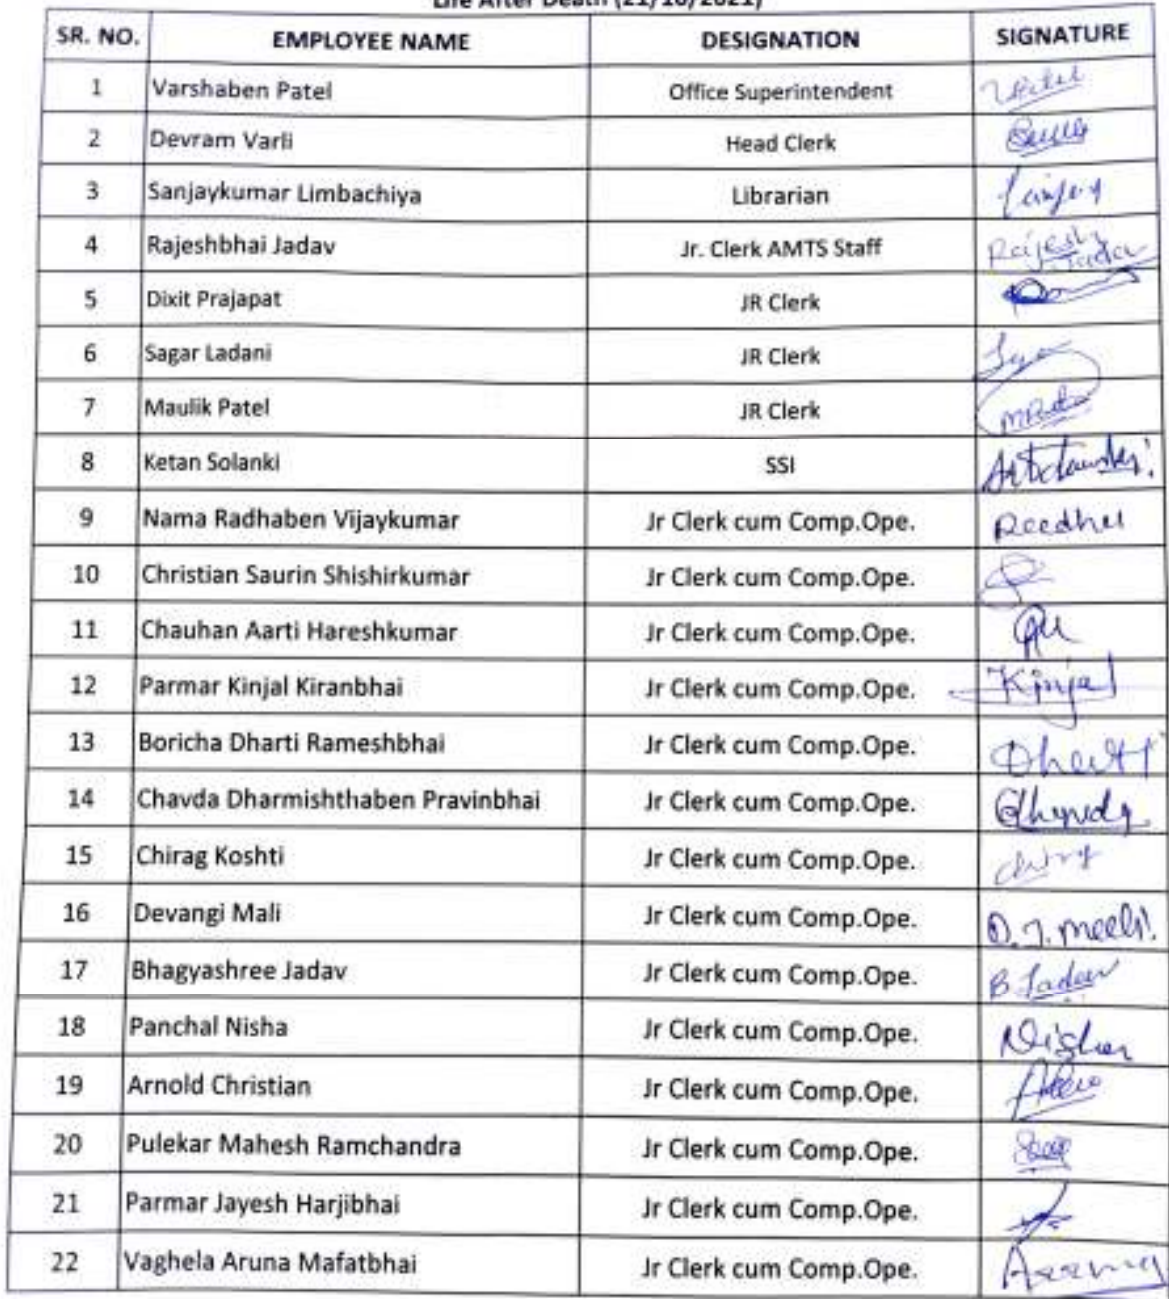 Life After Death (21/10/2021)
SR. NO. EMPLOYEE NAME DESIGNATION SIGNATURE
1 Varshaben Patel Office Superintendent
2 Devram Varli Head Clerk
3 Sanjaykumar Limbachiya Librarian
4 Rajeshbhai Jadav Jr. Clerk AMTS Staff Rajesh Jadav
5 Dixit Prajapat JR Clerk
6 Sagar Ladani JR Clerk
7 Maulik Patel JR Clerk
8 Ketan Solanki SSI
9 Nama Radhaben Vijaykumar Jr Clerk cum Comp.Ope.
10 Christian Saurin Shishirkumar Jr Clerk cum Comp.Ope.
11 Chauhan Aarti Hareshkumar Jr Clerk cum Comp.Ope.
12 Parmar Kinjal Kiranbhai Jr Clerk cum Comp.Ope. Kinjal
13 Boricha Dharti Rameshbhai Jr Clerk cum Comp.Ope. Dharti
14 Chavda Dharmishthaben Pravinbhai Jr Clerk cum Comp.Ope.
15 Chirag Koshti Jr Clerk cum Comp.Ope.
16 Devangi Mali Jr Clerk cum Comp.Ope.
17 Bhagyashree Jadav Jr Clerk cum Comp.Ope. B Jadav
18 Panchal Nisha Jr Clerk cum Comp.Ope. Nisha
19 Arnold Christian Jr Clerk cum Comp.Ope.
20 Pulekar Mahesh Ramchandra Jr Clerk cum Comp.Ope.
21 Parmar Jayesh Harjibhai Jr Clerk cum Comp.Ope.
22 Vaghela Aruna Mafatbhai Jr Clerk cum Comp.Ope. Aruna